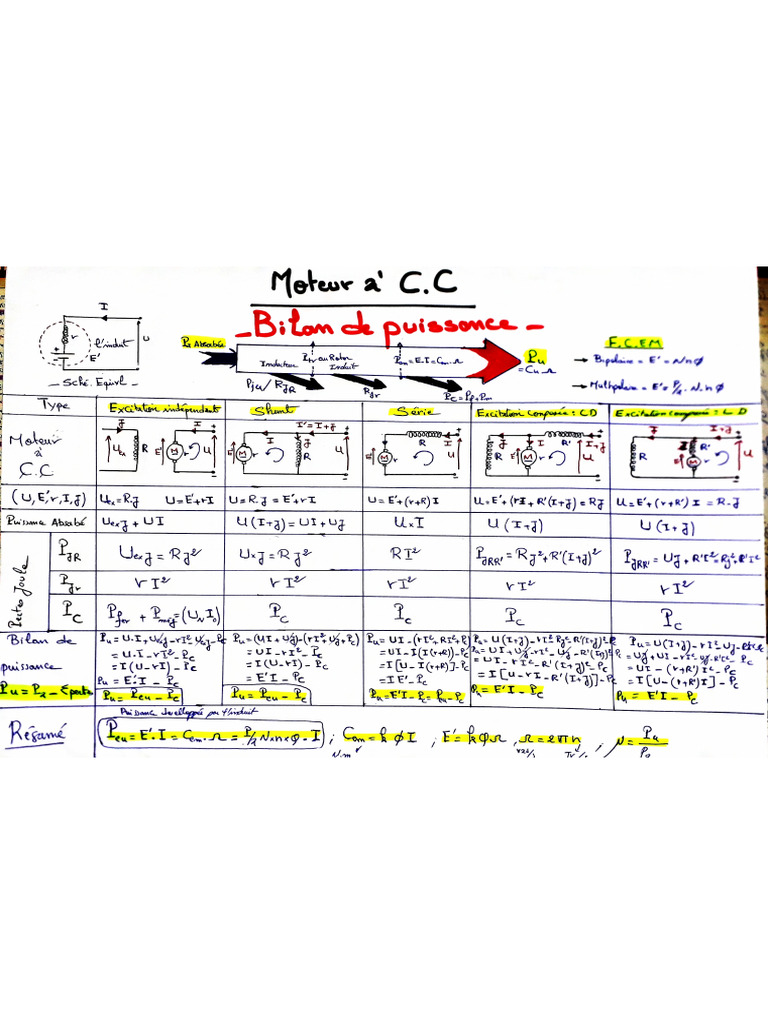 Moteur à C.C
- Bilan de puissance -
I
r
l'induit
U
+
E'
- Sché. Equivl. -
Pa Absorbée
Inducteur
Ptr au Rotor
Induit
Pem = E'.I = Cem.Ω
Pu
= Cu.Ω
PJex / PJR
PJr
F.C.EM
→ Bipolaire = E' = N.n Φ
→ Multipolaire = E' = P/a . N.n Φ
Type
Excitation indépendante
Shunt
Série
Excitation composée : CD
Excitation composée : L D
Moteur
à
C.C
J
Uex
R
E'
M
r
I
U
I' = I+J
J
I
E'
M
r
R
U
I
R
E'
M
r
U
J
I
R'
I+J
R
E'
M
r
U
I+J
J
R'
I
R
E'
M
r
U
(U, E', r, I, J)
Uex = R.J U = E'+rI
U = R.J = E'+rI
U = E'+(r+R)I
U = E'+(rI+R'(I+J) = RJ
U = E'+(r+R') I = R.J
Puissance Absorbé
Uex J + UI
U(I+J) = UI + UJ
U x I
U (I+J)
U (I+J)
Pertes Joule
PJR
Uex J = RJ²
U x J = RJ²
RI²
PJRR' = RJ²+R'(I+J)²
PJRR' = UJ + R'I² = RJ²+R'I²
PJr
rI²
rI²
rI²
rI²
rI²
PC
Pfer + Pméc = (UN I0)
PC
PC
PC
PC
Bilan de
puissance
Pu = Pa - Σpertes
Pu = U.I + UexJ - rI² - UexJ - PC
= U.I - rI² - PC
= I(U - rI) - PC
Pu = E'.I - PC
Pu = Pem - PC
Pu = (UI + UJ) - (rI² + UJ + PC)
= UI - rI² - PC
= I(U - rI) - PC
= E'I - PC
Pu = Pem - PC
Pu = UI - (rI² + RI² + PC)
= UI - I(I(r+R)) - PC
= I[U - I(r+R)] - PC
= IE' - PC
Pu = E'I - PC = Pem - PC
Pu = U(I+J) - rI² - RJ² - R'(I+J)² - PC
= UI + UJ - rI² - UJ - R'(I+J)² - PC
= UI - rI² - R'(I+J)² - PC
= I[U - rI - R'(I+J)²] - PC
Pu = E'I - PC
Pu = U(I+J) - rI² - UJ - R'I² - PC
= UJ + UI - rI² - UJ - R'I² - PC
= UI - (r+R')I² - PC
= I[U - (r+R')I] - PC
Pu = E'I - PC
Résumé
Puissance développée par l'induit
Pem = E'.I = Cem.Ω = P/a N x n x Φ - I ; Cem = k Φ I ; E' = k Φ Ω , Ω = 2πn ; η = Pu / Pa
N.m